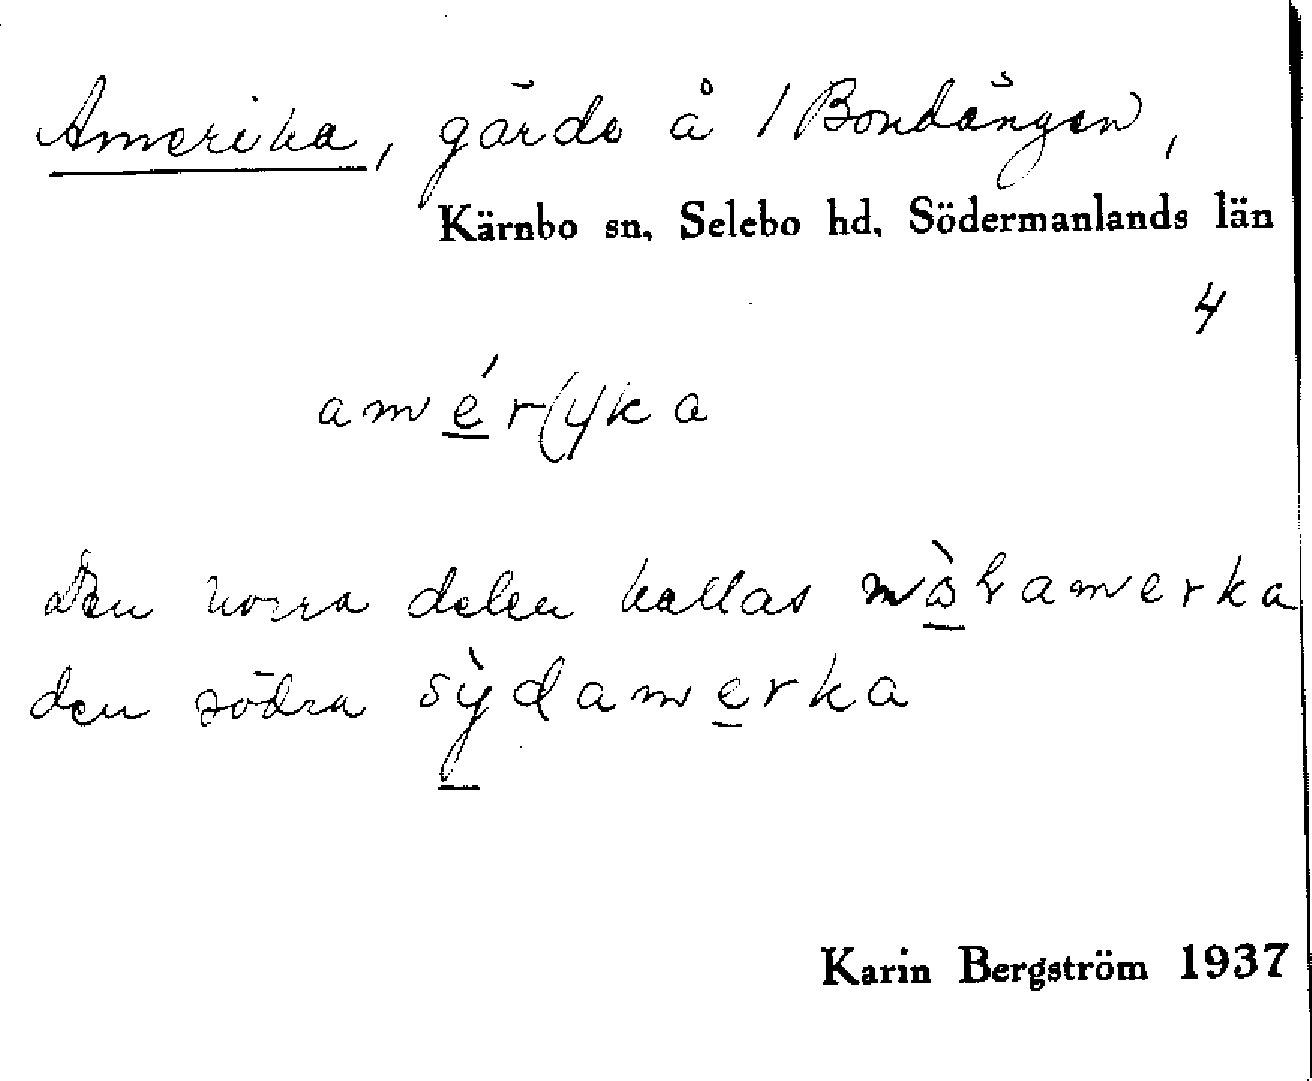 Amerika, gärde å /Bondängen,
Kärnbo sn, Selebo hd, Södermanlands län
4
amér(y)ka
Den norra delen kallas
den södra sỳdamerka
Karin Bergström 1937